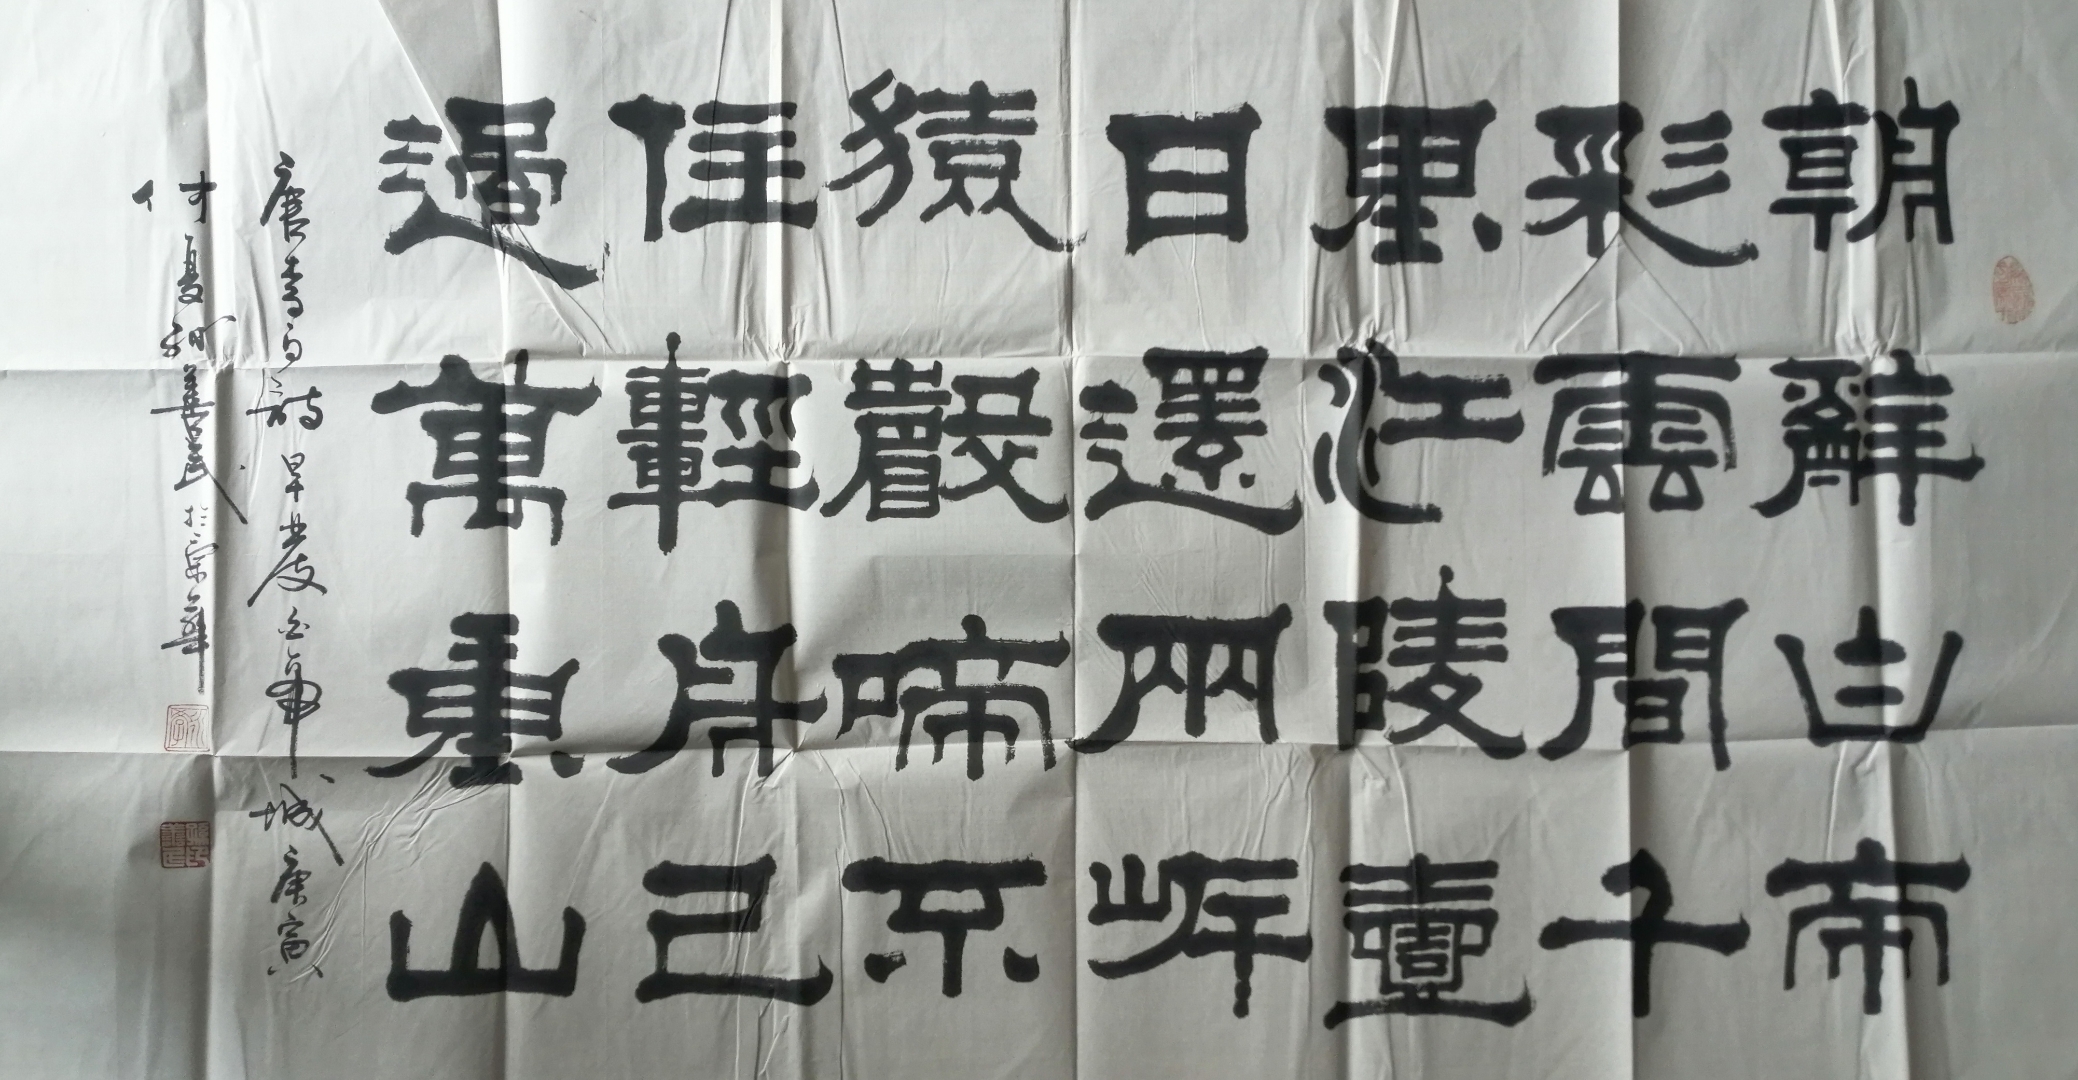 朝辭白帝
彩雲間千
里江陵壹
日還兩岸
猿聲啼不
住輕舟已
過萬重山
唐李白詩早發白帝城庚寅